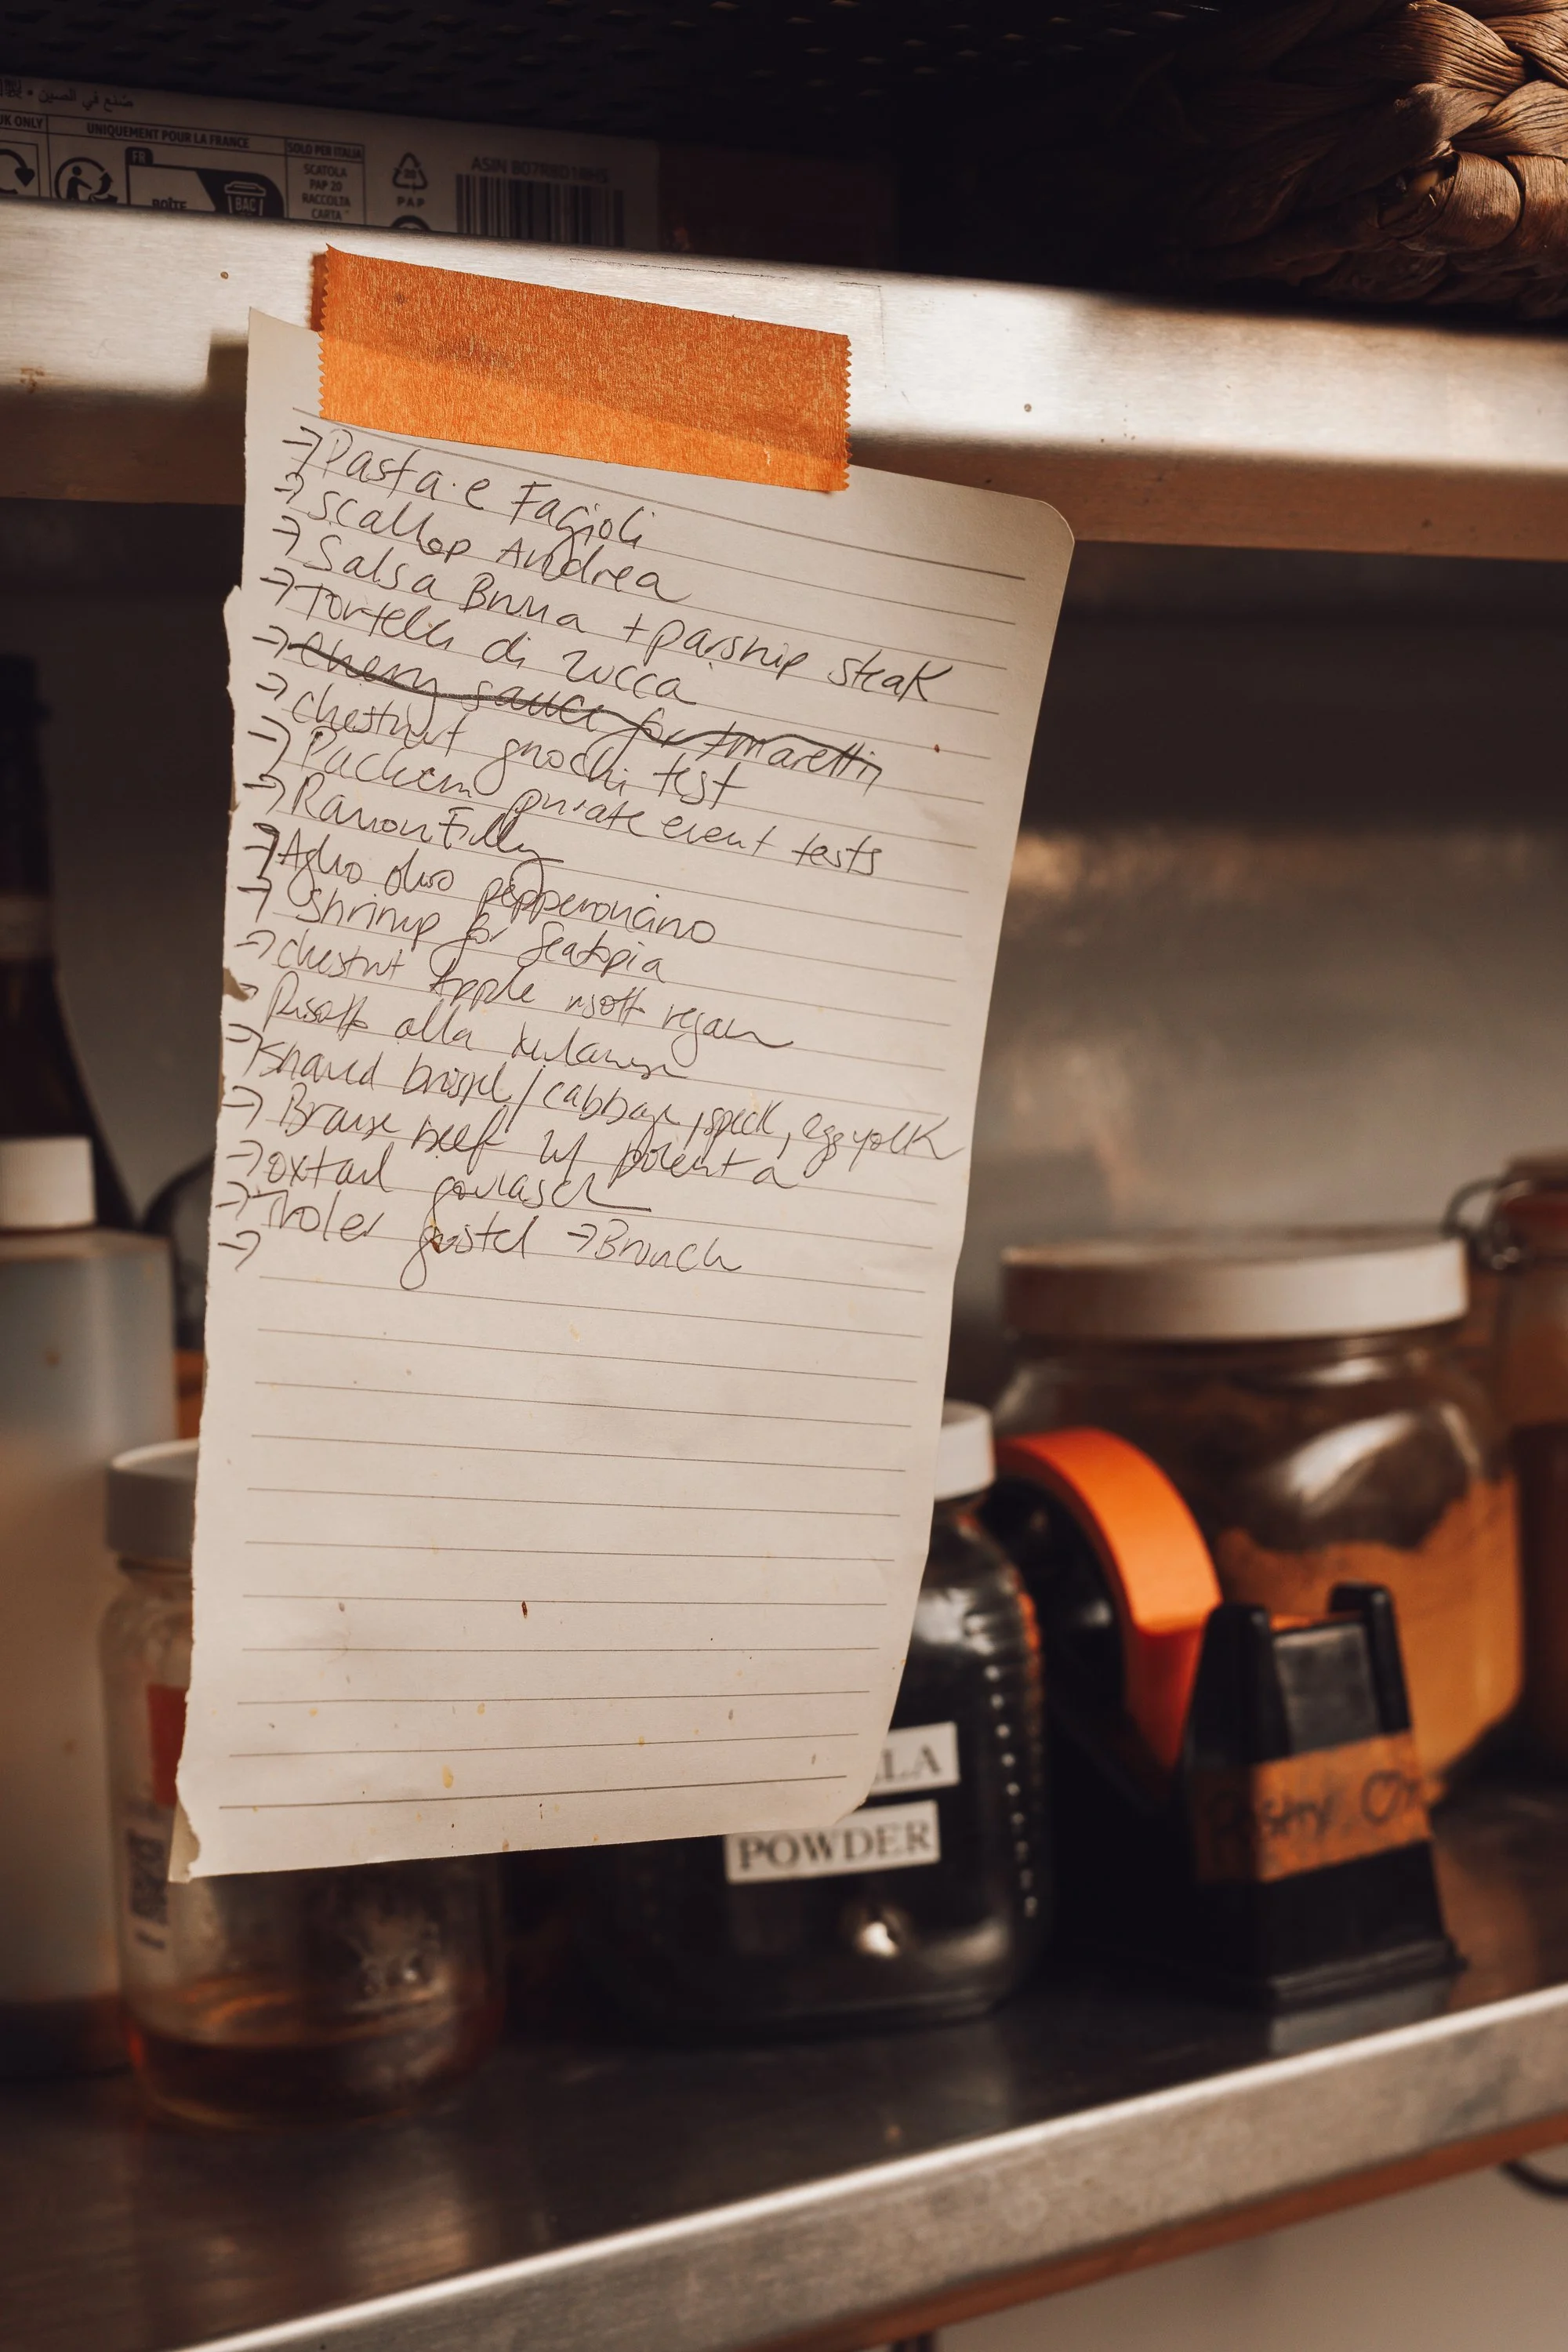 صنع في الصين
UK ONLY
UNIQUEMENT POUR LA FRANCE
FR
BOÎTE
BAC
SOLO PER ITALIA
SCATOLA
PAP 20
RACCOLTA
CARTA
20
PAP
→ Pasta e Fagioli
→ Scallop Andrea
→ Salsa Bruna + parsnip steak
→ Tortelli di zucca
→ Cherry sauce for Amarettin
→ chestnut gnocchi test
→ Paccheri private event tests
→ Aglio olio pepperoncino
→ Shrimp for Seatopia
→ chestnut Apple risott vegan
→ Risotto alla
→ Shaved brussel / cabbage, speck, egg yolk
→ Braise beef w/ polenta
→ oxtail goulasch
→ Tiroler gröstel → Brunch
→
LLA
POWDER